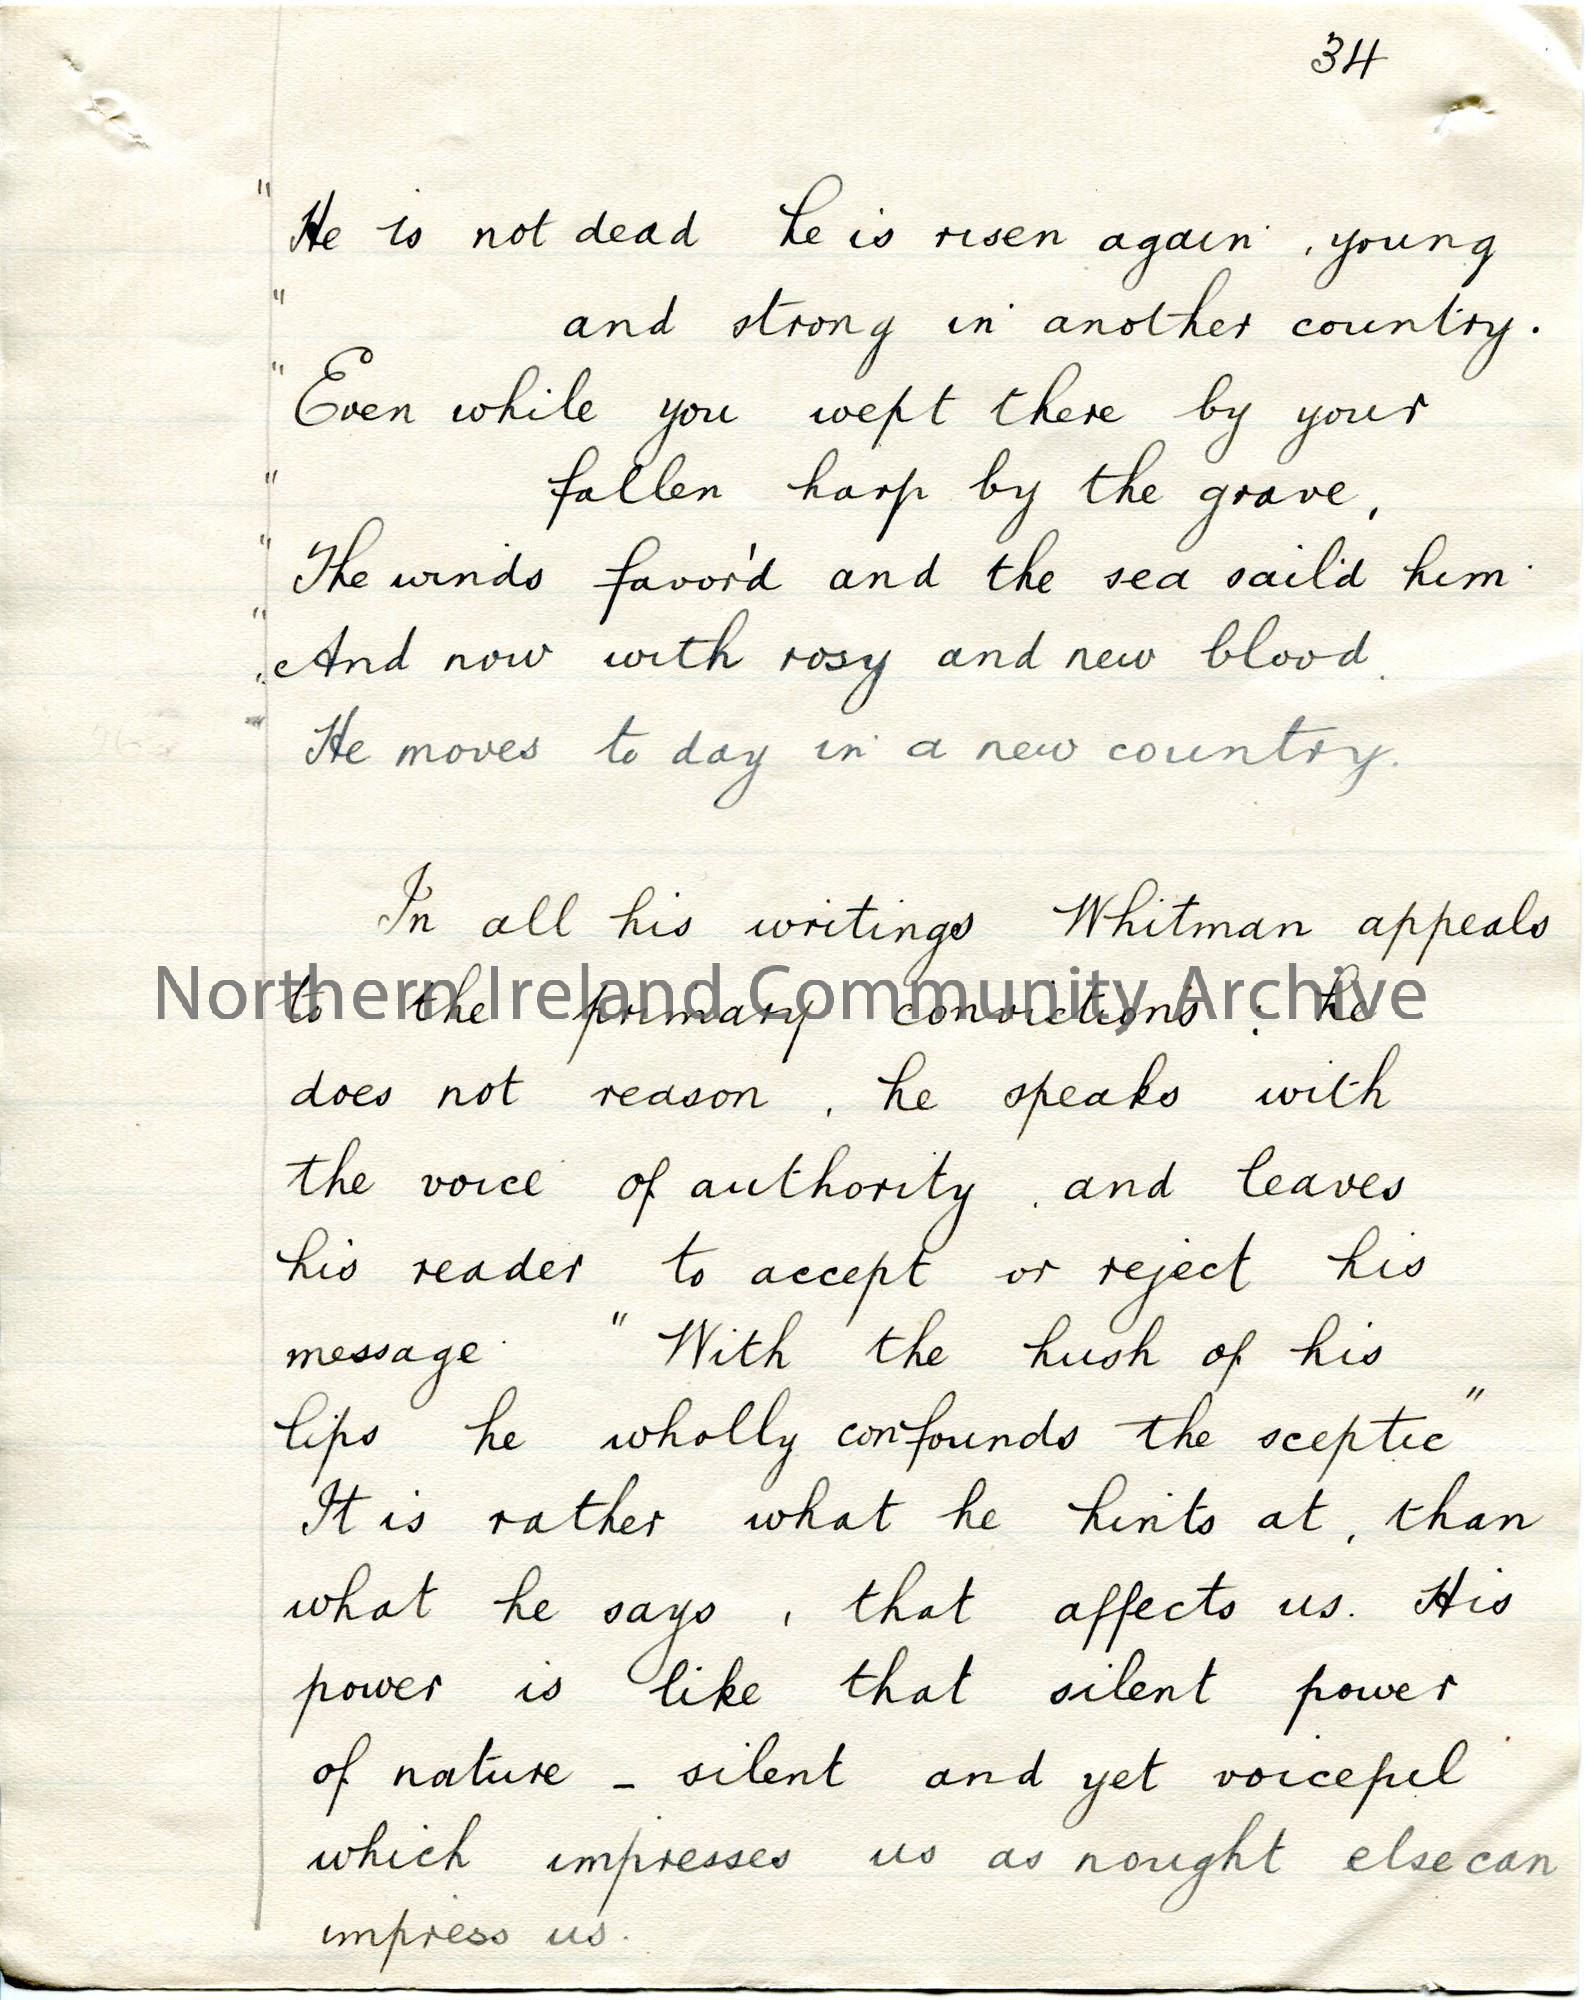 34
" He is not dead he is risen again, young
" and strong in another country.
" Even while you wept there by your
" fallen harp by the grave,
" The winds favor'd and the sea sail'd him
" And now with rosy and new blood.
" He moves to day in a new country.
In all his writings Whitman appeals
to the primary convictions; he
Northern Ireland Community Archive
does not reason, he speaks with
the voice of authority, and leaves
his reader to accept or reject his
message. "With the hush of his
lips he wholly confounds the sceptic"
It is rather what he hints at, than
what he says, that affects us. His
power is like that silent power
of nature - silent and yet voiceful
which impresses us as nought else can
impress us.